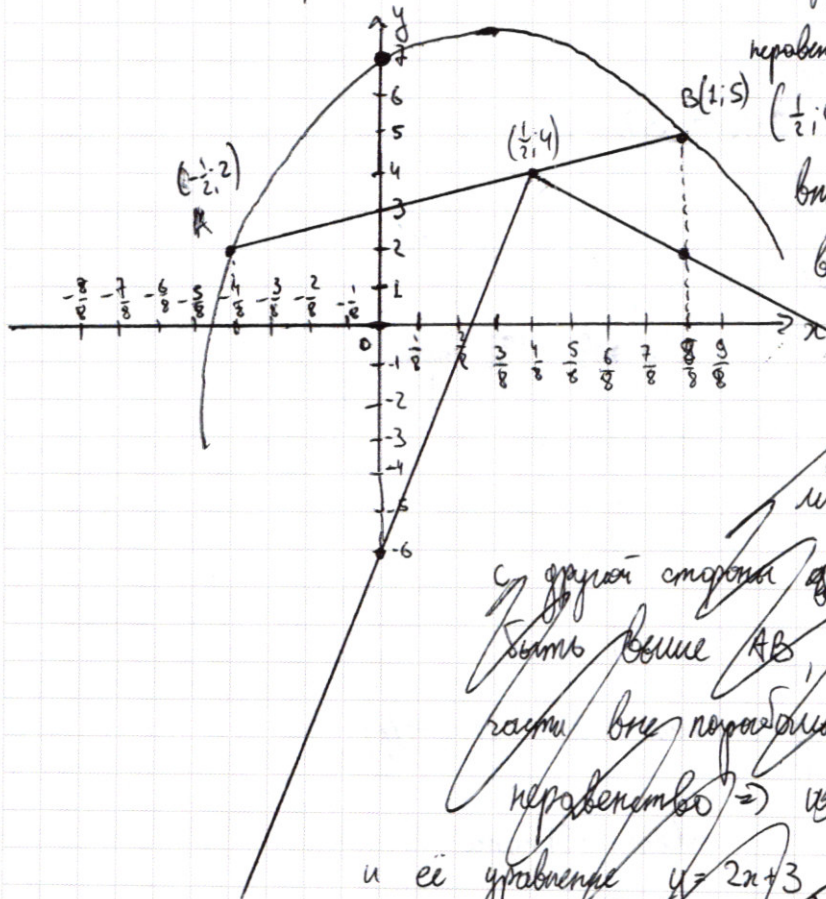 y
7
6
5
4
3
2
1
B(1;5)
(1/2;4)
(-1/2;2)
A
-8/8 -7/8 -6/8 -5/8 -4/8 -3/8 -2/8 -1/8
0 1/8 2/8 3/8 4/8 5/8 6/8 7/8 8/8 9/8 x
-1
-2
-3
-4
-5
-6
с другой стороны
быть выше AB,
части вне
неравенство =>
и её уравнение y = 2x+3